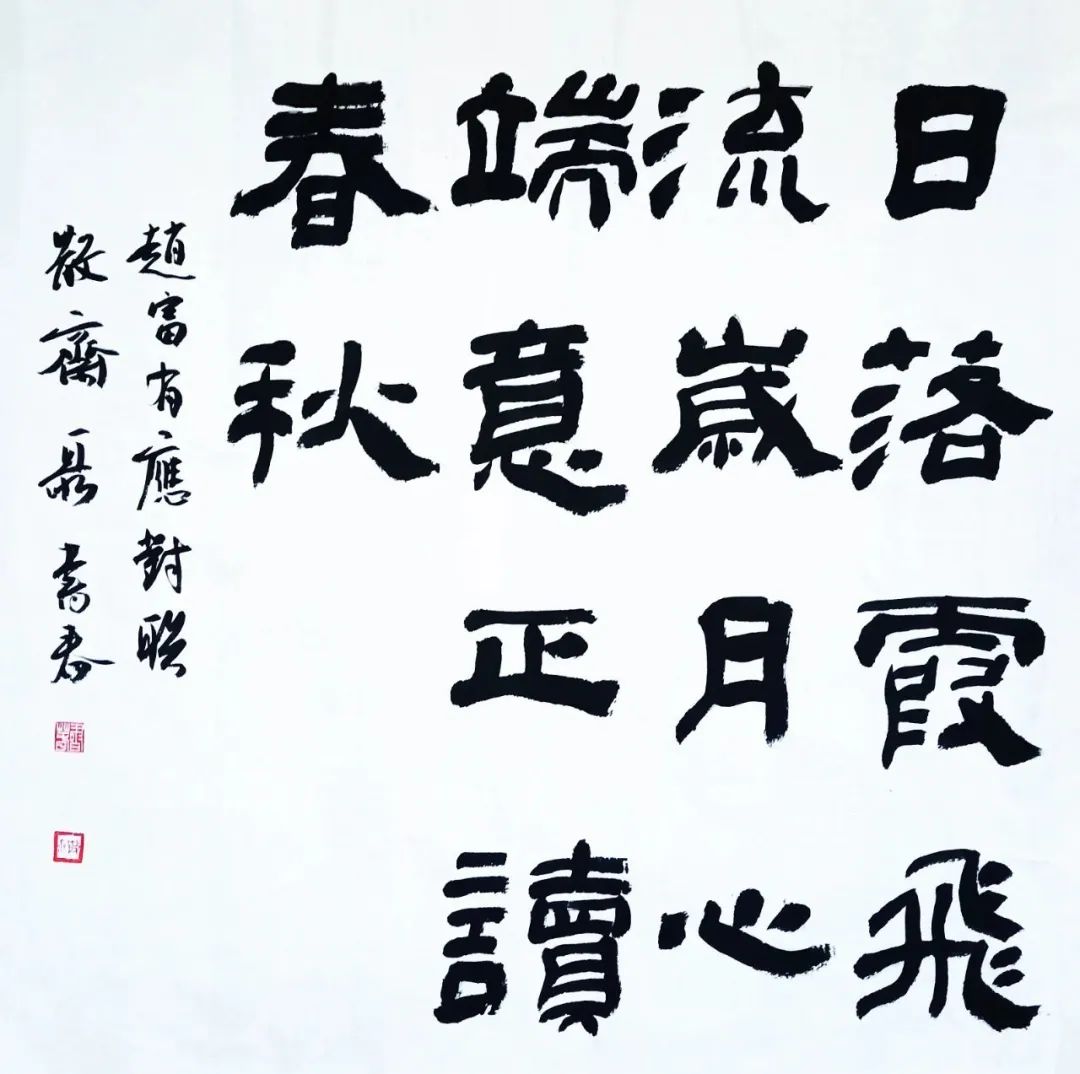 日落霞飛
流歲月心
端意正讀
春秋
趙富有應對联
散齋聶